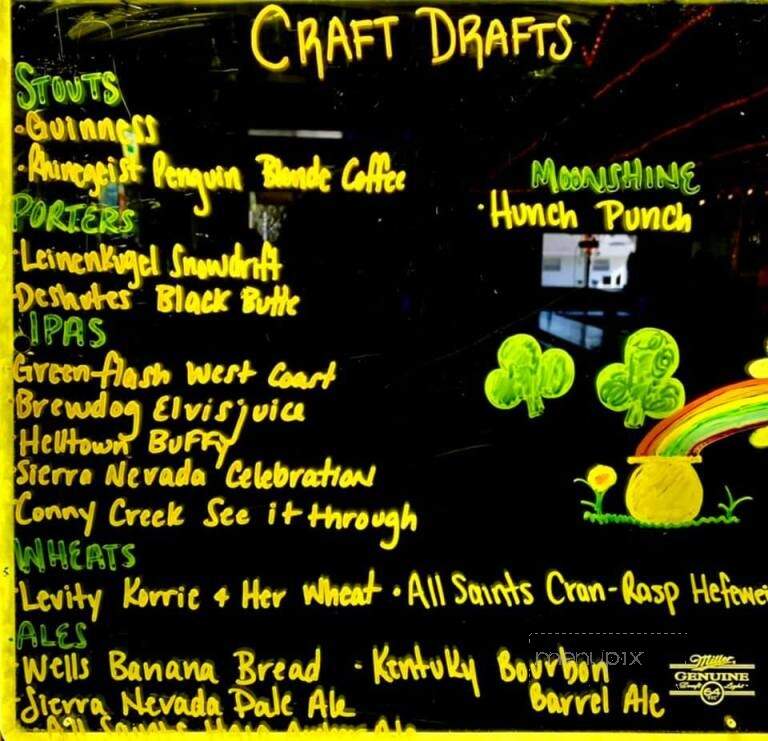 CRAFT DRAFTS
STOUTS
·Guinness
·Rhinegeist Penguin Blonde Coffee
MOONSHINE
·Hunch Punch
PORTERS
·Leinenkugel Snowdrift
·Deshutes Black Butte
IPAS
Green flash West Coast
Brewdog Elvis juice
·Helltown Buffy
Sierra Nevada Celebration
Conny Creek See it through
WHEATS
·Levity Korrie & Her Wheat ·All Saints Cran-Rasp Hefewei
ALES
·Wells Banana Bread ·Kentuky Bourbon
Barrel Ale
·Sierra Nevada Pale Ale
All Saints Ale
menupix
Miller
GENUINE
Draft Light
64